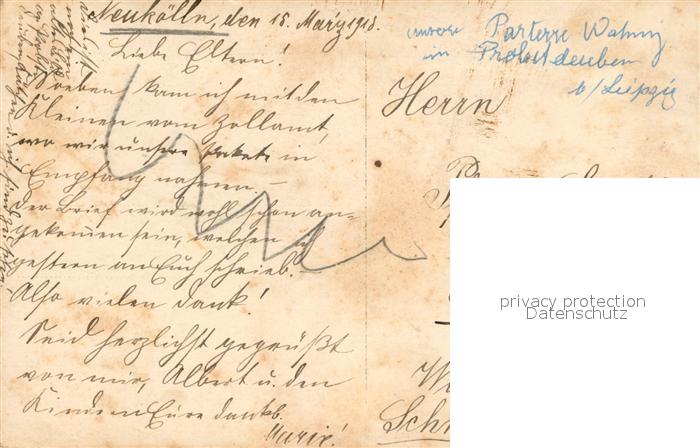 Neukölln, den 15. März 1918.
Liebe Eltern!
Soeben kam ich mit den
Kleinen vom Zollamt,
wo wir unsere Pakete in
Empfang nahmen. –
Der Brief wird wohl schon an-
gekommen sein, welchen ich
gestern an Euch schrieb. –
Also vielen Dank!
Seid herzlichst gegrüßt
von mir, Albert u. den
Kindern Eure dankb.
Marie!
unsere Parterre Wohnung
in Probstdeuben
b/Leipzig
Herrn
privacy protection
Datenschutz